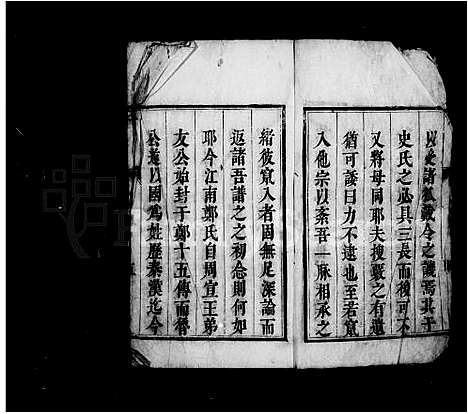 史氏之必具三長而後可不
又將毋同耶夫搜羅之有遺
猶可諉曰力不逮也至若冒
入他宗以紊吾一脉相承之
緒彼冒入者固無足深論而
返諸吾譜之之初念則何如
耶今江南鄭氏自周宣王弟
友公始封于鄭十五傳而
公遂以國為姓歷秦漢迄今